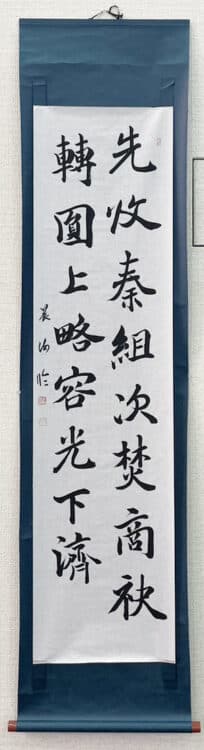 先收秦組次焚商袂
轉圓上略容光下濟
臨